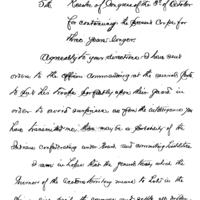 5th. Resolve of Congress of the 3d of October
for continuing the present Corps for
three years longer.
Agreeably to your directions I have sent
orders to the officers commanding at the several posts
to put their Troops perfectly upon their guard in
order to avoid surprise as from the intelligence you
have transmitted me there may be a probability of the
Indians confederating under Brant and committing hostilities
I am in hopes that the general treaty which the
Governor of the western territory means to hold in the